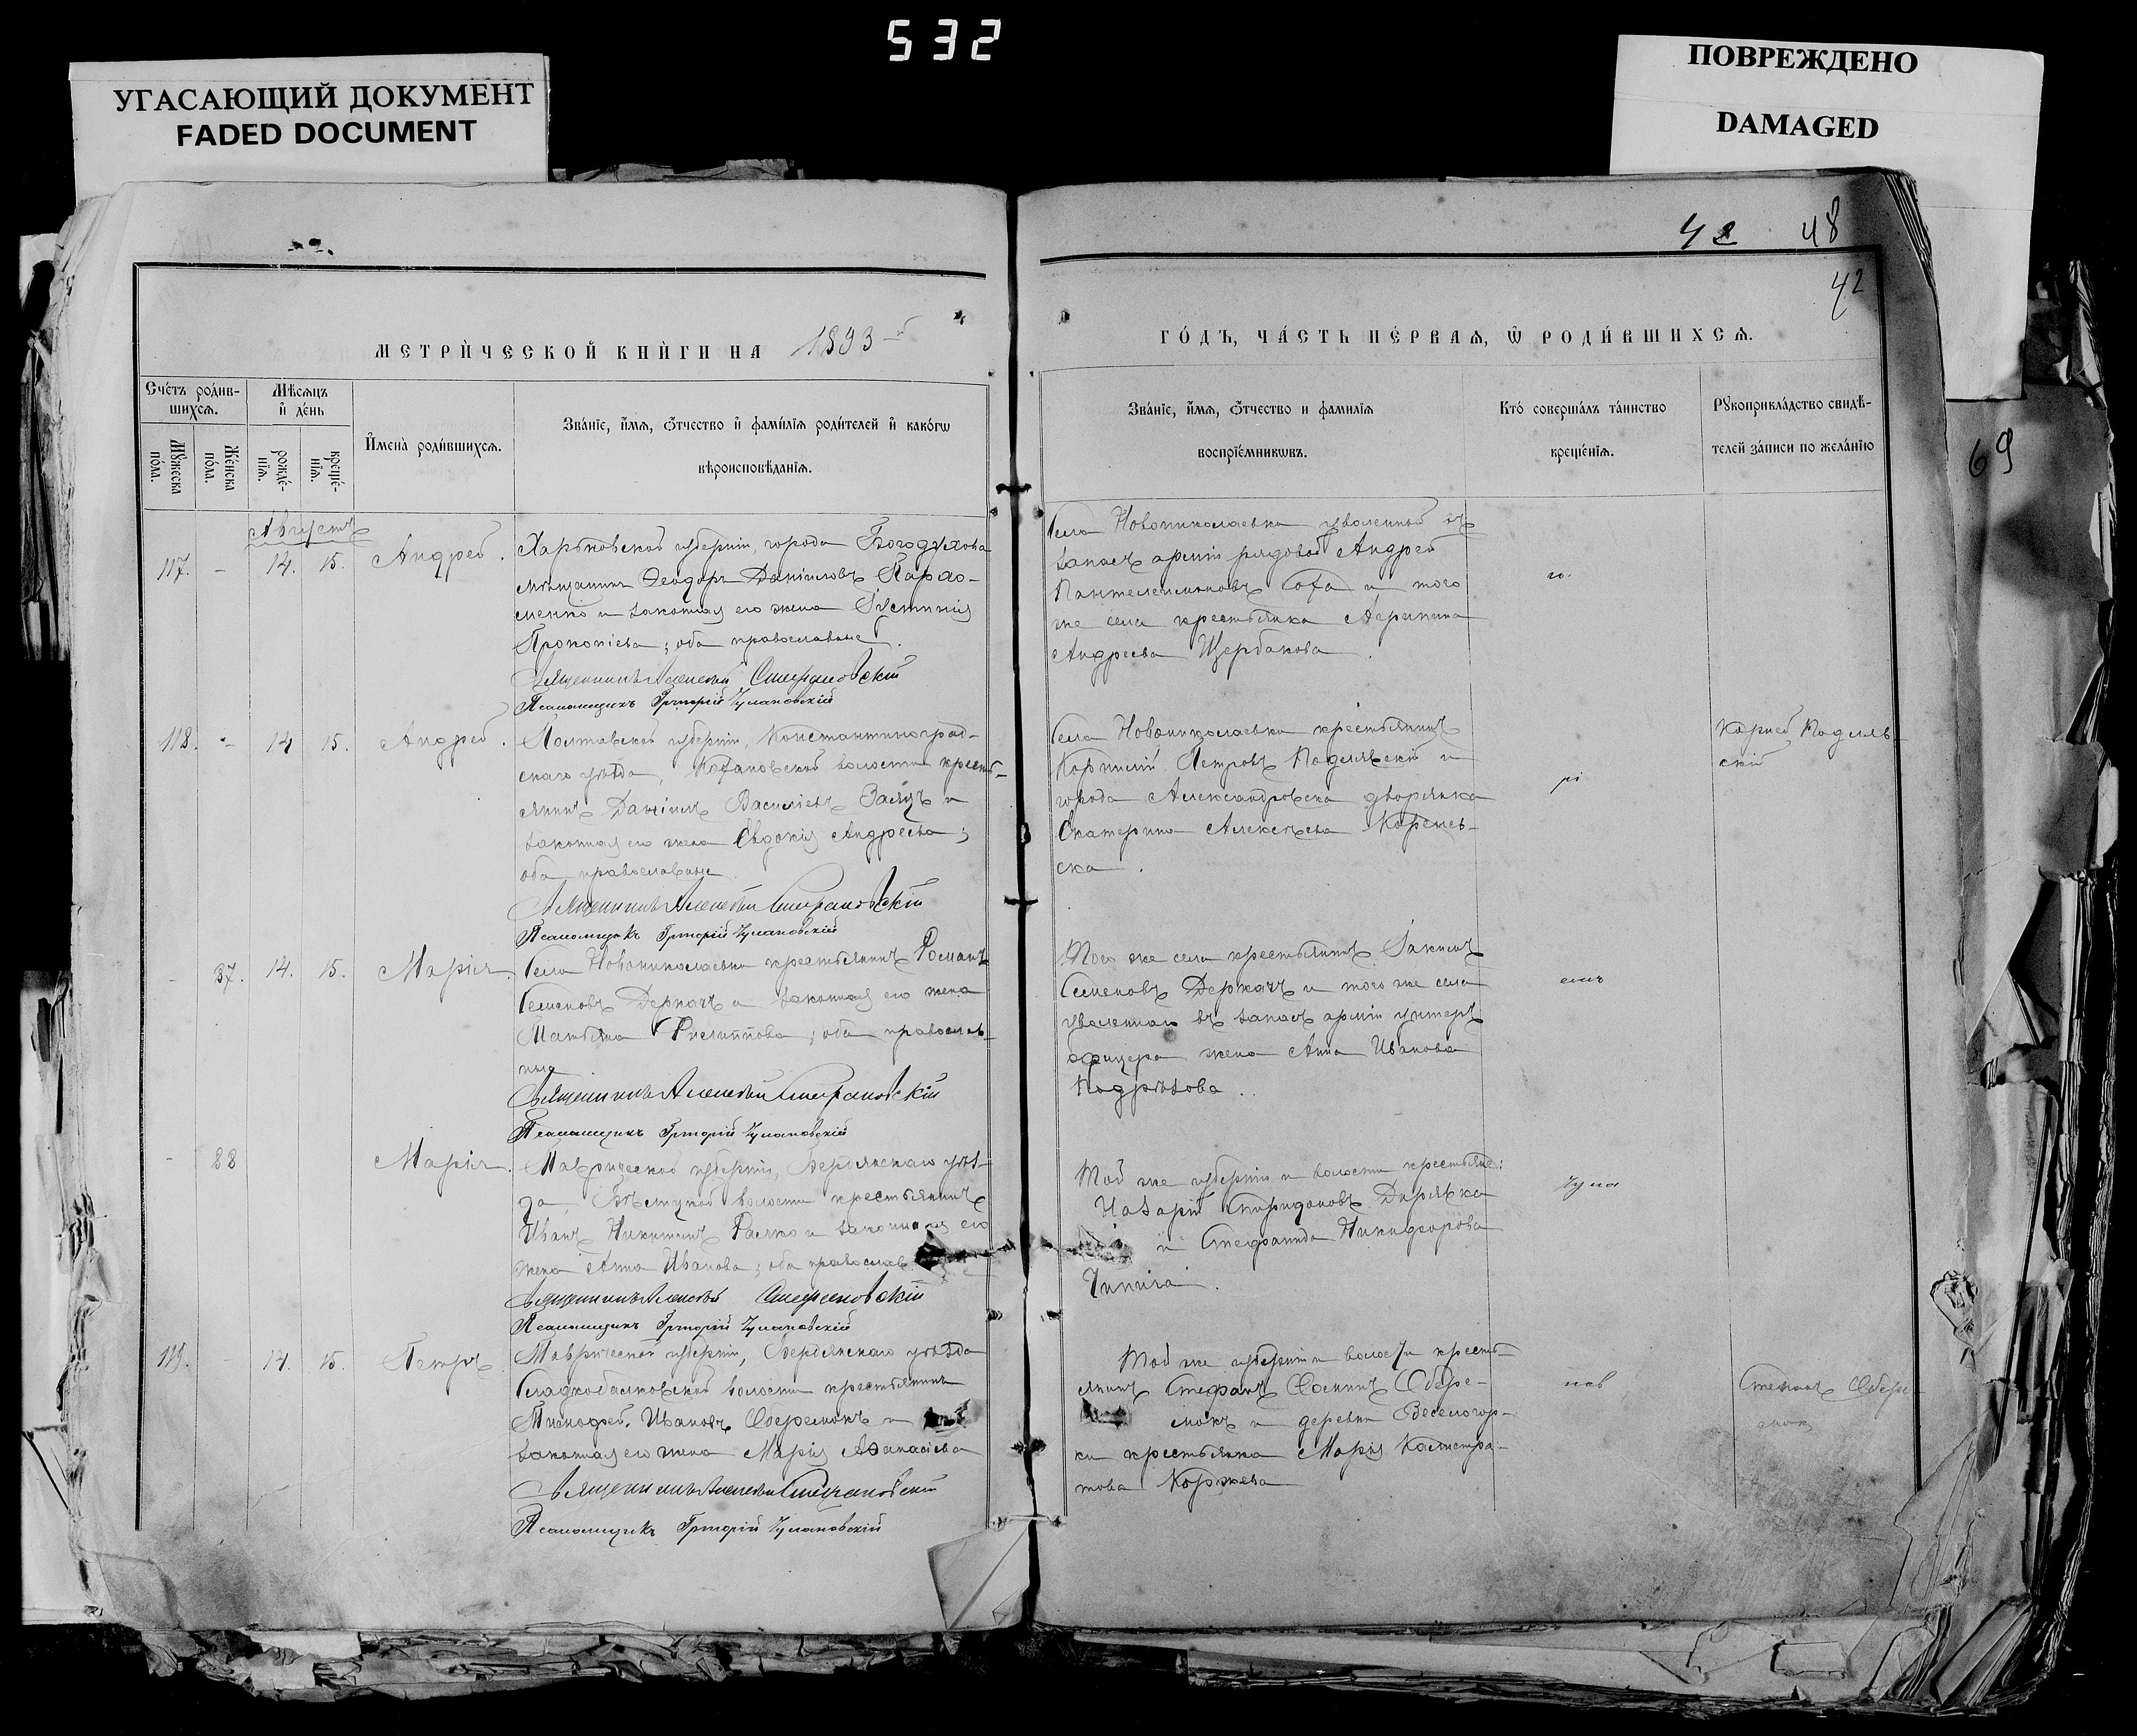 532
УГАСАЮЩИЙ ДОКУМЕНТ
FADED DOCUMENT
ПОВРЕЖДЕНО
DAMAGED
42 48
42
69
МЕТРИ́ЧЕСКОЙ КНИ́ГИ НА 1893
ГО́ДЪ, ЧА́СТЬ ПЕ́РВАѦ, Ѡ҆ РОДИ́ВШИХСѦ.
Сче́тъ роди́в-
шихсѧ.
Мꙋ́жеска
по́ла.
Же́нска
по́ла.
Мѣ́сѧцъ
и҆ де́нь
рожде́-
нїѧ.
креще́-
нїѧ.
И҆мена̀ роди́вшихсѧ.
Зва́нїе, и҆́мѧ, ѻ҆́тчество и҆ фами́лїѧ роди́телей и҆ како́гѡ
вѣроисповѣ́данїѧ.
Зва́нїе, и҆́мѧ, ѻ҆́тчество и фами́лїѧ
воспрїе́мникѡвъ.
Кто́ соверша́лъ та́инство
креще́нїѧ.
Рꙋкоприкла́дство свидѣ́-
телей за́писи по жела́нїю
Августъ
117. - 14. 15. Андрей.
Харьковской губерніи, города Богодухова
мѣщанинъ Ѳеодоръ Даніиловъ Пархо-
менко и законная его жена Іустинія
Прокопіева; оба православные.
Священникъ Алексѣй Стефановскій
Псаломщикъ Григорій Чулановскій
Села Новониколаевки уволенный въ
запасъ арміи рядовой Андрей
Пантелеимоновъ и того
же села крестьянка Агрипина
Андреева Щербакова.
118. - 14 15. Андрей.
Полтавской губерніи, Константиноград-
скаго уѣзда, волости кресть-
янинъ Даніилъ Василіевъ Заяцъ и
законная его жена Евдокія Андреева;
оба православные
Священникъ Алексѣй Стефановскій
Псаломщикъ Григорій Чулановскій
Села Новониколаевки крестьянинъ
Корнилій Петровъ и
города Александровска дворянка
Екатерина Алексѣева Кореnев-
ска.
Корней
скій
- 87. 14. 15. Марія.
Села Новониколаевки крестьянинъ Романъ
Семеновъ Деркачъ и законная его жена
Татьяна Филиппова; оба православ-
ные
Священникъ Алексѣй Стефановскій
Псаломщикъ Григорій Чулановскій
Того же села крестьянинъ Іакимъ
Семеновъ Деркачъ и того же села
уволеннаго въ запасъ арміи унтеръ
офицера жена Анна Иванова
Подрѣзова.
- 88 Марія.
Таврической губерніи, Бердянскаго уѣз-
да, волости крестьянинъ
Иванъ Никитинъ и законная его
жена Анна Иванова; оба православ
Священникъ Алексѣй Стефановскій
Псаломщикъ Григорій Чулановскій
Той же губерніи и волости крестьяне:
Назарій Спиридоновъ
и Стефанида Никифорова
119. 14. 15. Петръ
Таврической губерніи, Бердянскаго уѣзда
Сладкобалковской волости крестьянинъ
Тимофей Ивановъ Оберемокъ и
законная его жена Марія Аѳанасіева
Священникъ Алексѣй Стефановскій
Псаломщикъ Григорій Чулановскій
Той же губерніи и волости кресть-
янинъ Стефанъ Ѳоминъ Обере-
мокъ и деревни Веселогор-
ки крестьянка Марія Калистра-
това Коржева
Степанъ Обере-
мокъ